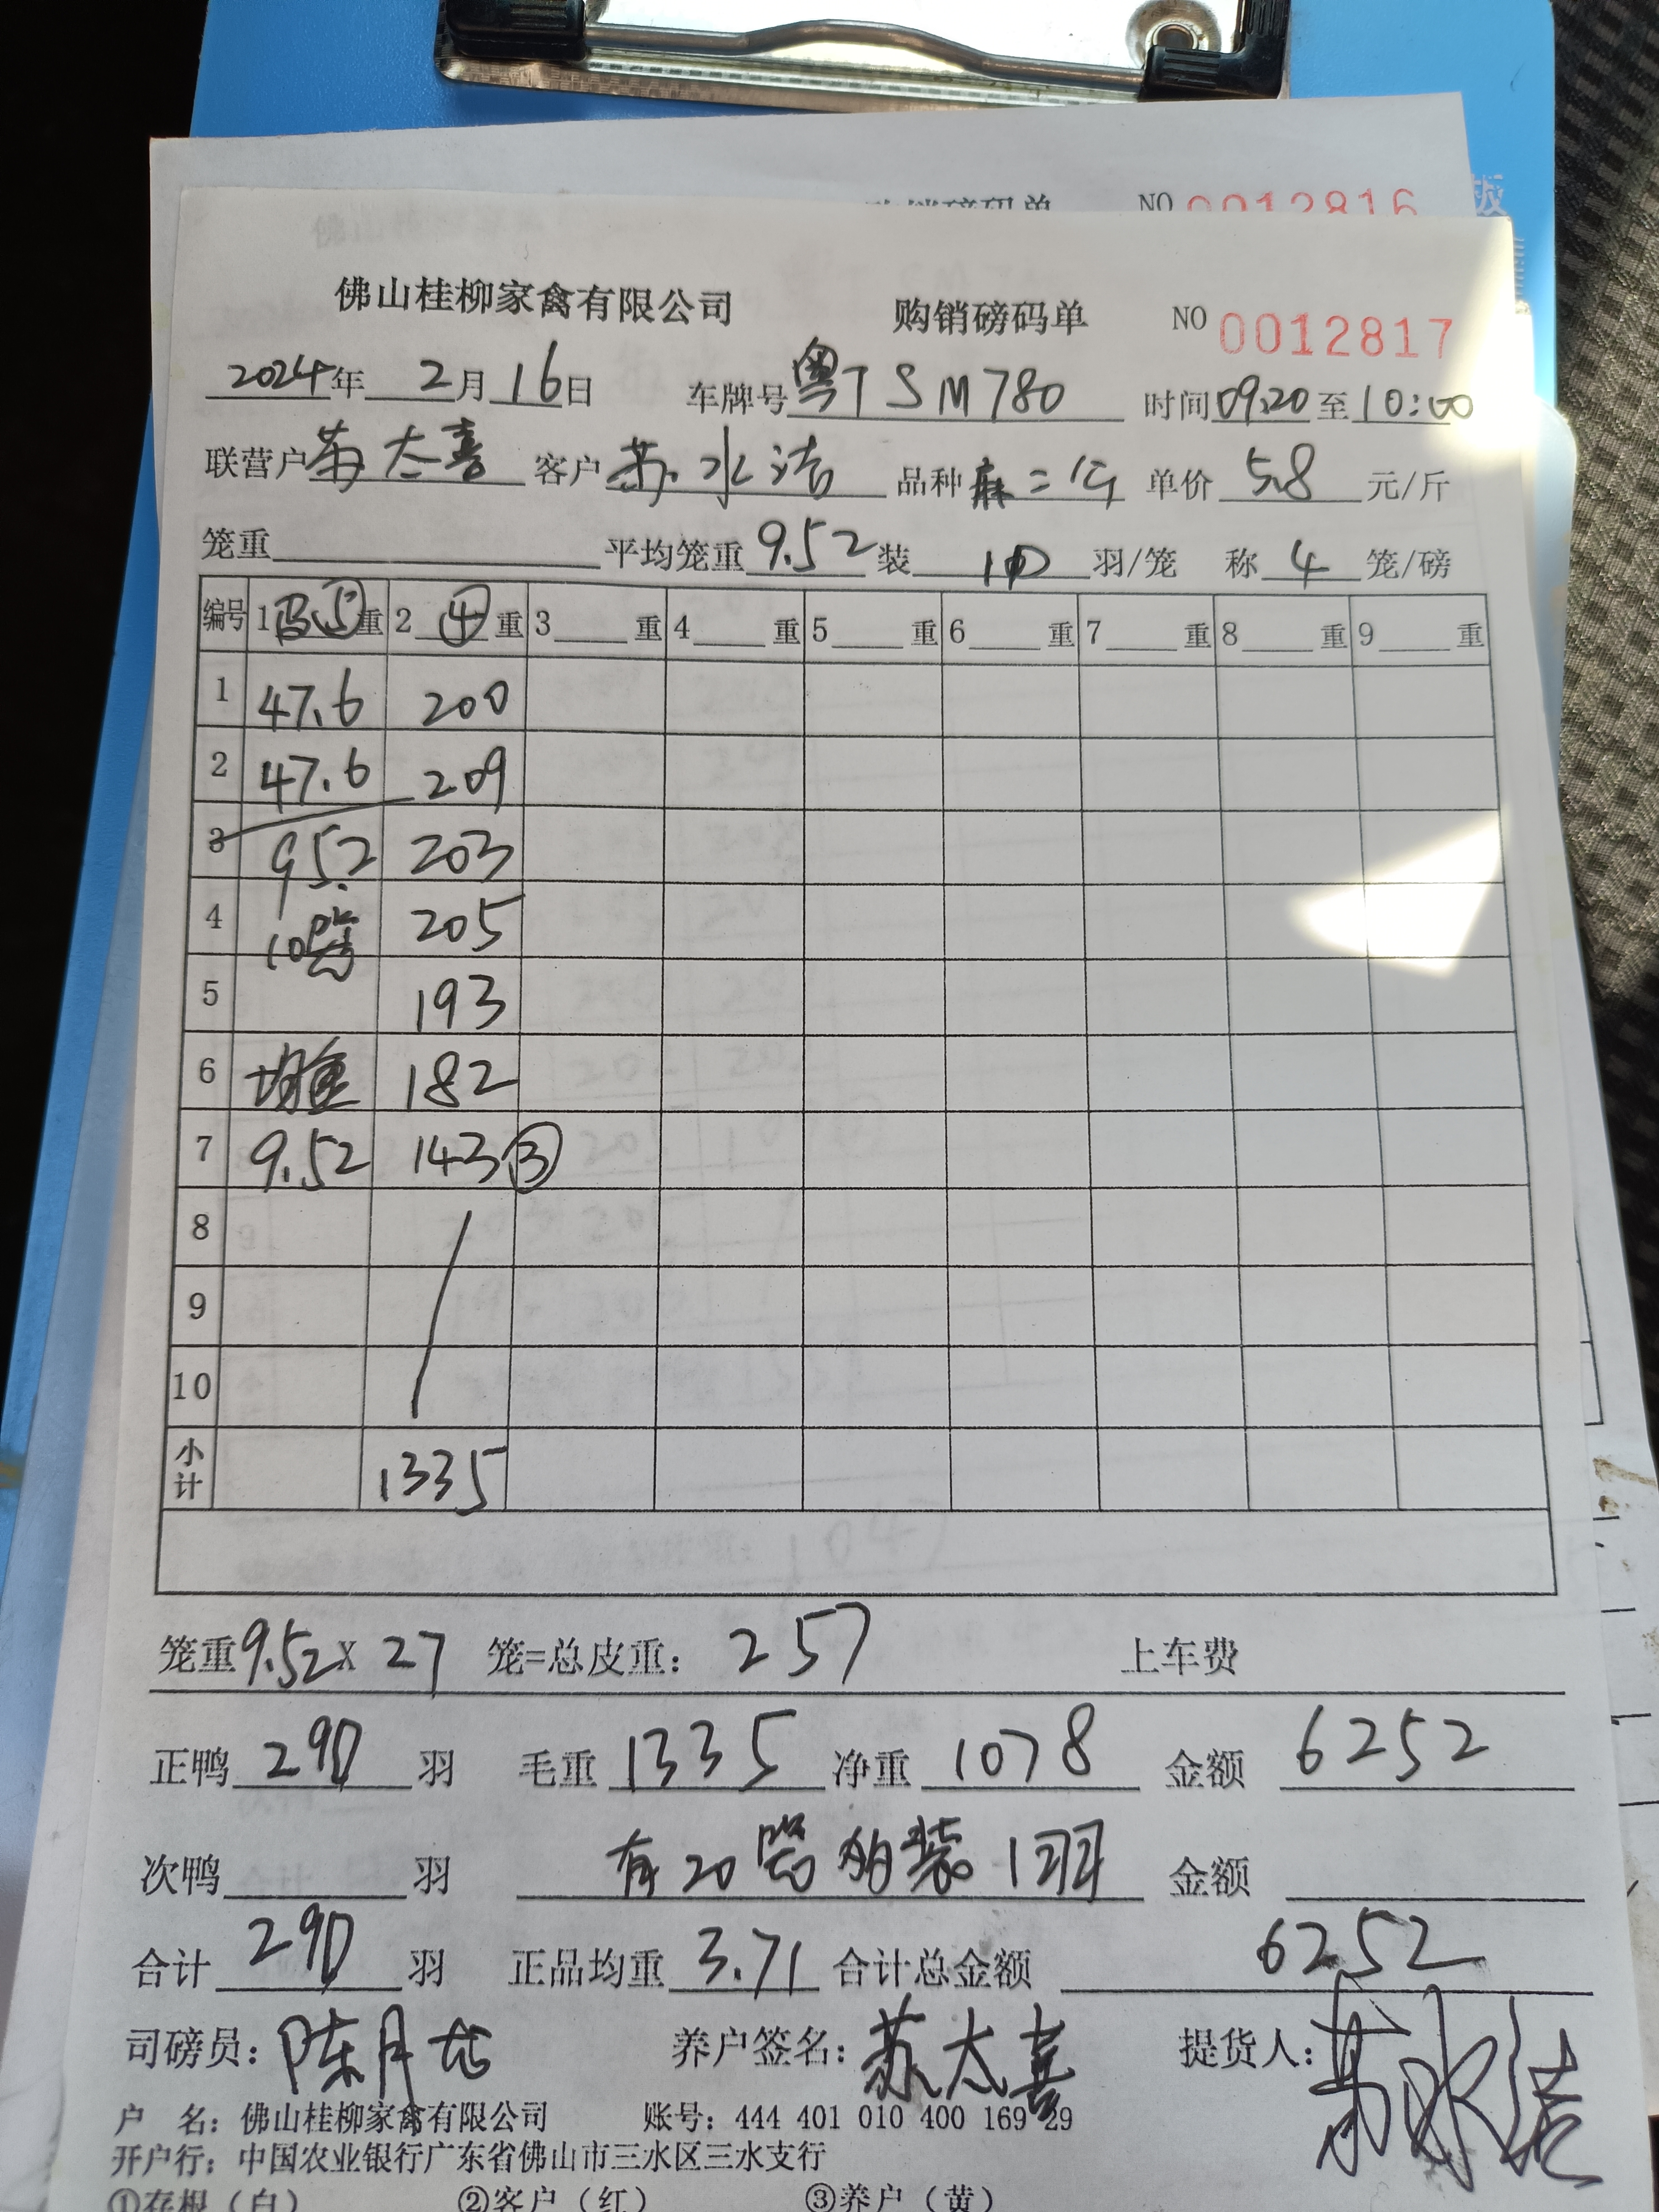 购销磅码单 NO 0012816
佛山桂柳家禽有限公司 购销磅码单 NO 0012817
2024年 2月 16日 车牌号 粤TSM780 时间 09:20 至 10:00
联营户 苏太喜 客户 苏水洁 品种 麻二公 单价 5.8 元/斤
笼重 平均笼重 9.52 装 10 羽/笼 称 4 笼/磅
编号 1 ⑤ 重 2 ④ 重 3 重 4 重 5 重 6 重 7 重 8 重 9 重
1 47.6 200
2 47.6 209
3 95.2 203
4 10笼 205
5 193
6 均重 182
7 9.52 143 ③
8
9
10
小计 1335
笼重 9.52 X 27 笼=总皮重: 257 上车费
正鸭 290 羽 毛重 1335 净重 1078 金额 6252
次鸭 羽 有20笼的装1羽 金额
合计 290 羽 正品均重 3.71 合计总金额 6252
司磅员: 陈月 养户签名: 苏太喜 提货人: 苏水洁
户 名: 佛山桂柳家禽有限公司 账号: 444 401 010 400 169 29
开户行: 中国农业银行广东省佛山市三水区三水支行
①存根(白) ②客户(红) ③养户(黄)